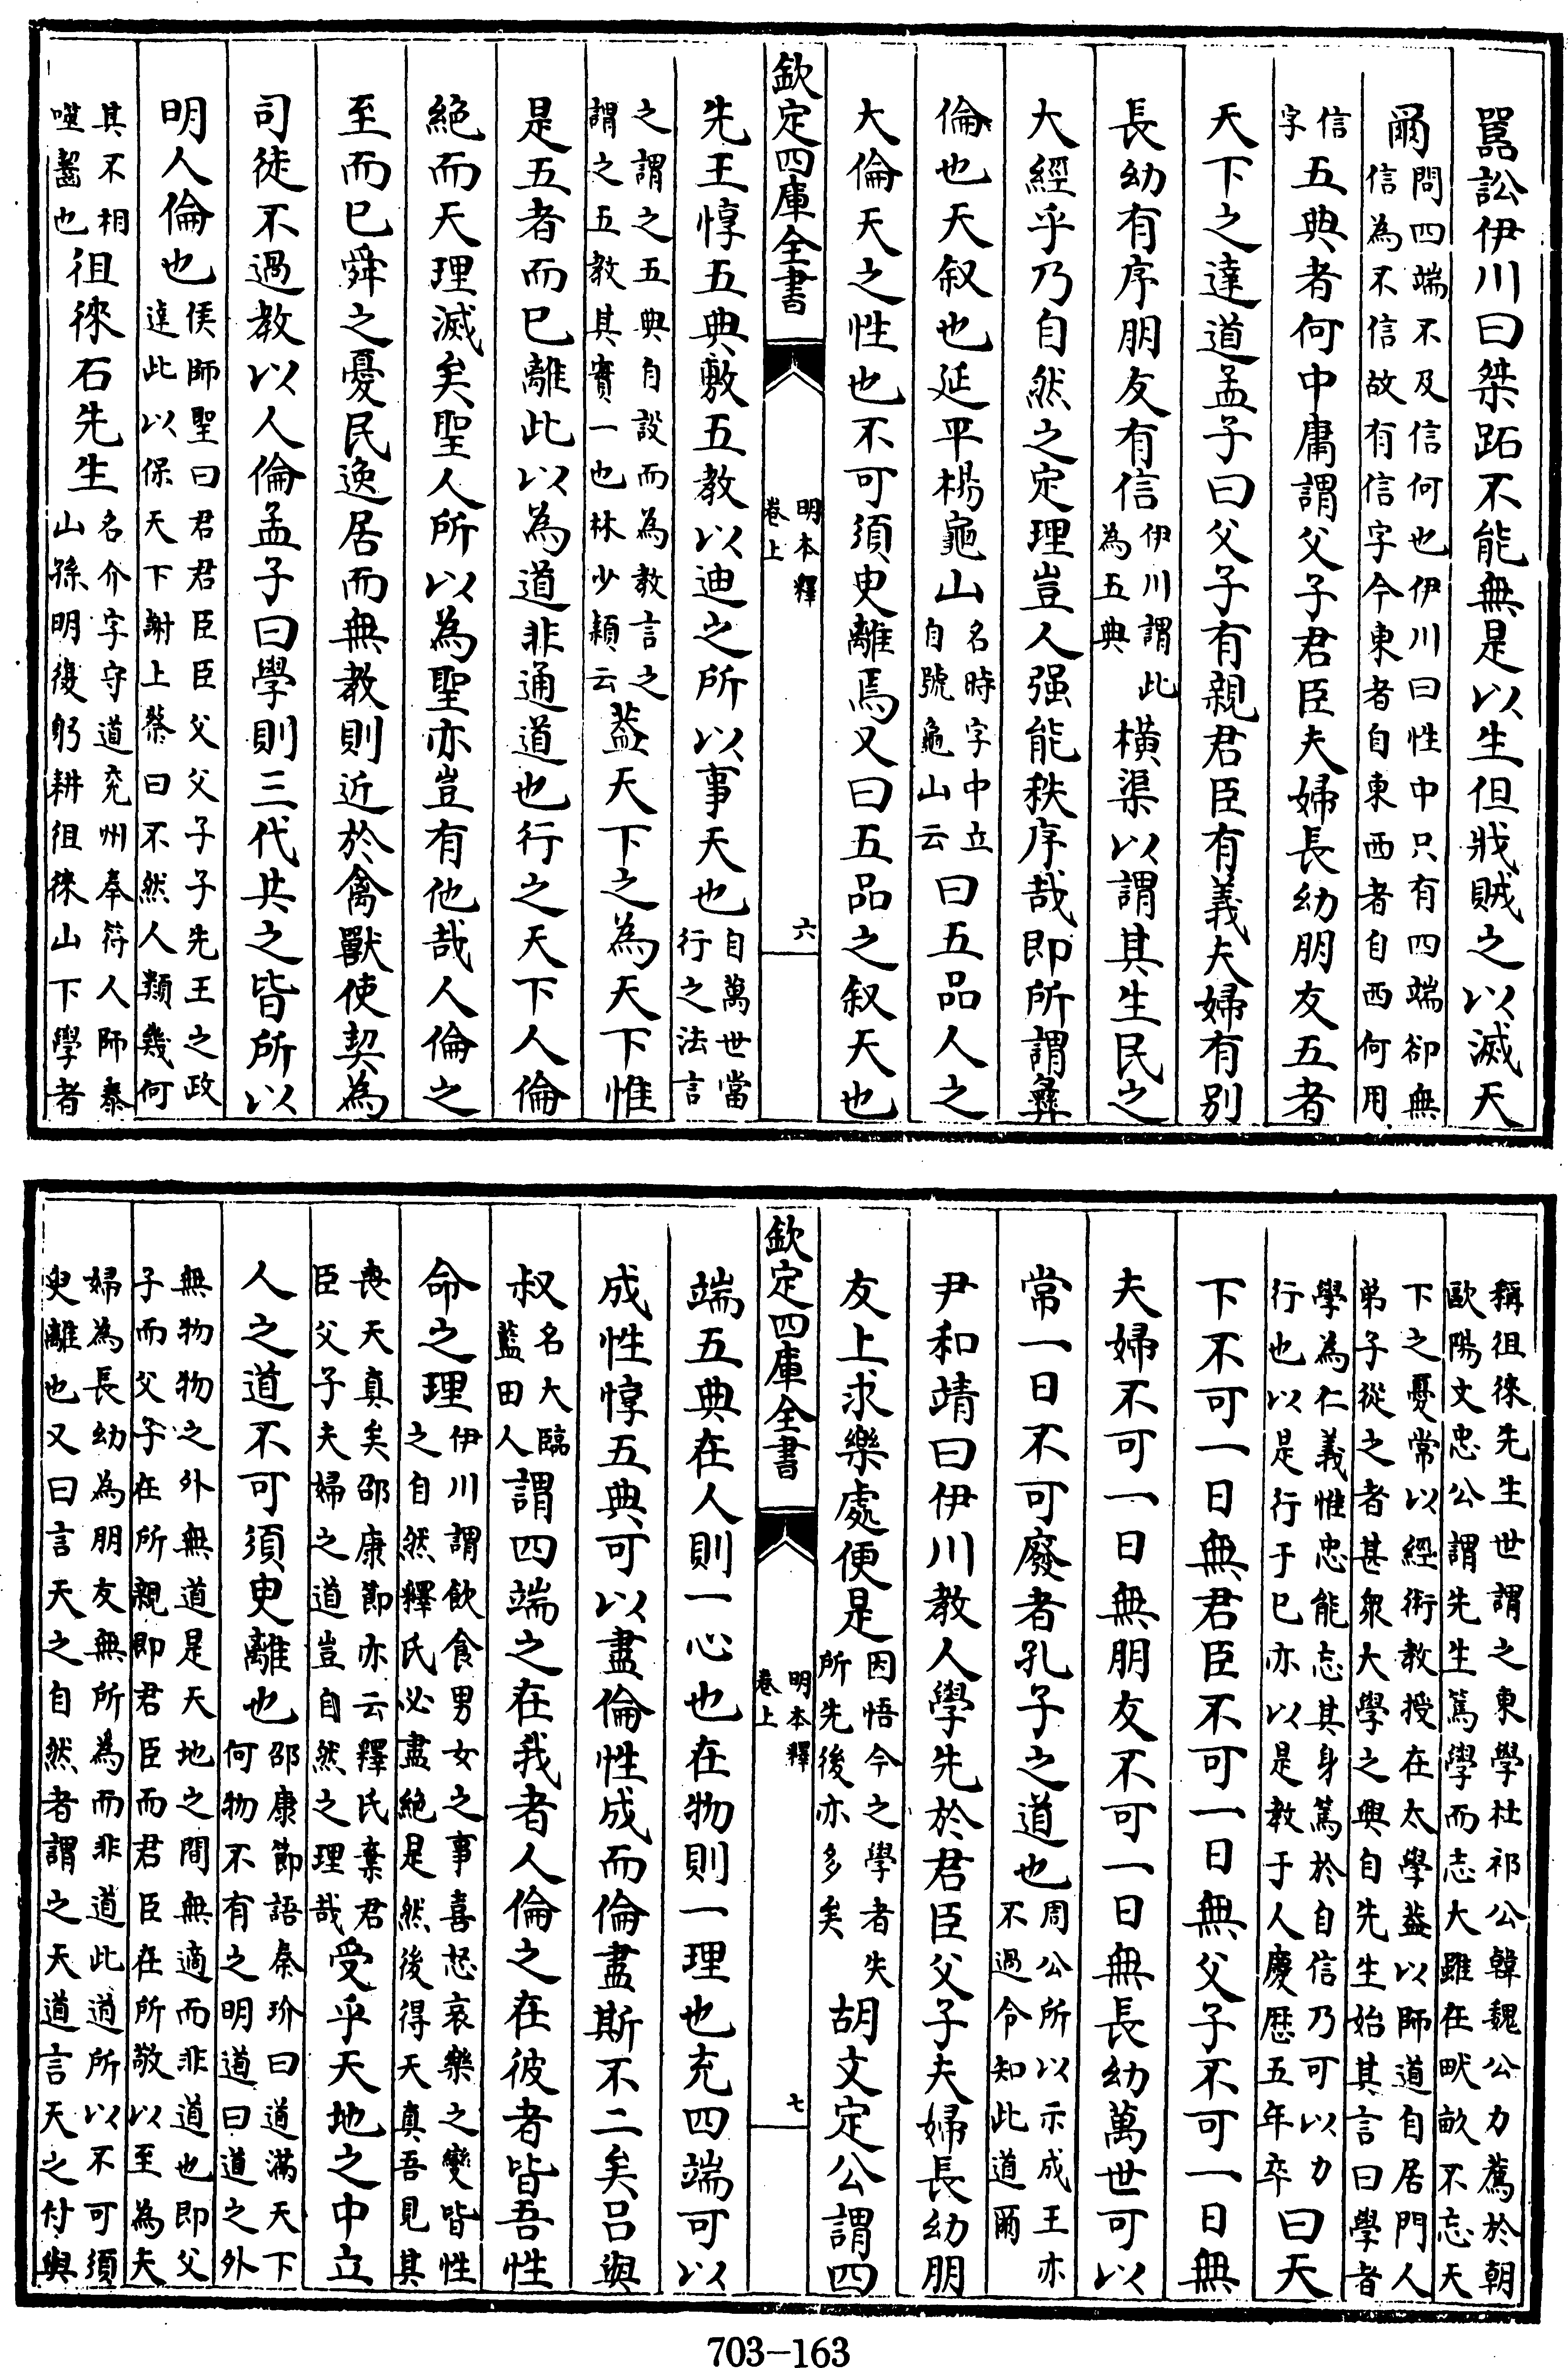 嚚訟伊川曰桀跖不能無是以生但戕賊之以滅天
爾問四端不及信何也伊川曰性中只有四端卻無
信為不信故有信字今東者自東西者自西何用
信
字五典者何中庸謂父子君臣夫婦長幼朋友五者
天下之達道孟子曰父子有親君臣有義夫婦有別
長幼有序朋友有信伊川謂此
為五典橫渠以謂其生民之
大經乎乃自然之定理豈人强能秩序哉即所謂彝
倫也天叙也延平楊龜山名時字中立
自號龜山云曰五品人之
大倫天之性也不可須臾離焉又曰五品之叙天也
欽定四庫全書
明本釋
卷上
六
先王惇五典敷五教以迪之所以事天也自萬世當
行之法言
之謂之五典自設而為教言之
謂之五教其實一也林少穎云葢天下之為天下惟
是五者而已離此以為道非通道也行之天下人倫
絕而天理滅矣聖人所以為聖亦豈有他哉人倫之
至而已舜之憂民逸居而無教則近於禽獸使契為
司徒不過教以人倫孟子曰學則三代共之皆所以
明人倫也侯師聖曰君君臣臣父父子子先王之政
達此以保天下謝上蔡曰不然人類幾何
其不相
噬齧也徂徠石先生名介字守道兗州奉符人師泰
山孫明復躬耕徂徠山下學者
稱徂徠先生世謂之東學杜祁公韓魏公力薦於朝
歐陽文忠公謂先生篤學而志大雖在畎畝不忘天
下之憂常以經術教授在太學益以師道自居門人
弟子從之者甚衆大學之興自先生始其言曰學者
學為仁義惟忠能忘其身篤於自信乃可以力
行也以是行于已亦以是教于人慶歴五年卒曰天
下不可一日無君臣不可一日無父子不可一日無
夫婦不可一日無朋友不可一日無長幼萬世可以
常一日不可廢者孔子之道也周公所以示成王亦
不過令知此道爾
尹和靖曰伊川教人學先於君臣父子夫婦長幼朋
友上求樂處便是因悟今之學者失
所先後亦多矣胡文定公謂四
欽定四庫全書
明本釋
卷上
七
端五典在人則一心也在物則一理也充四端可以
成性惇五典可以盡倫性成而倫盡斯不二矣呂與
叔名大臨
藍田人謂四端之在我者人倫之在彼者皆吾性
命之理伊川謂飲食男女之事喜怒哀樂之變皆性
之自然釋氏必盡絕是然後得天真吾見其
喪天真矣邵康節亦云釋氏棄君
臣父子夫婦之道豈自然之理哉受乎天地之中立
人之道不可須臾離也邵康節語秦玠曰道滿天下
何物不有之明道曰道之外
無物物之外無道是天地之間無適而非道也即父
子而父子在所親即君臣而君臣在所敬以至為夫
婦為長幼為朋友無所為而非道此道所以不可須
臾離也又曰言天之自然者謂之天道言天之付與
703-163